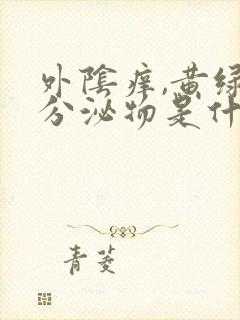 外陰痒,黄绿
分泌物是什
青菱